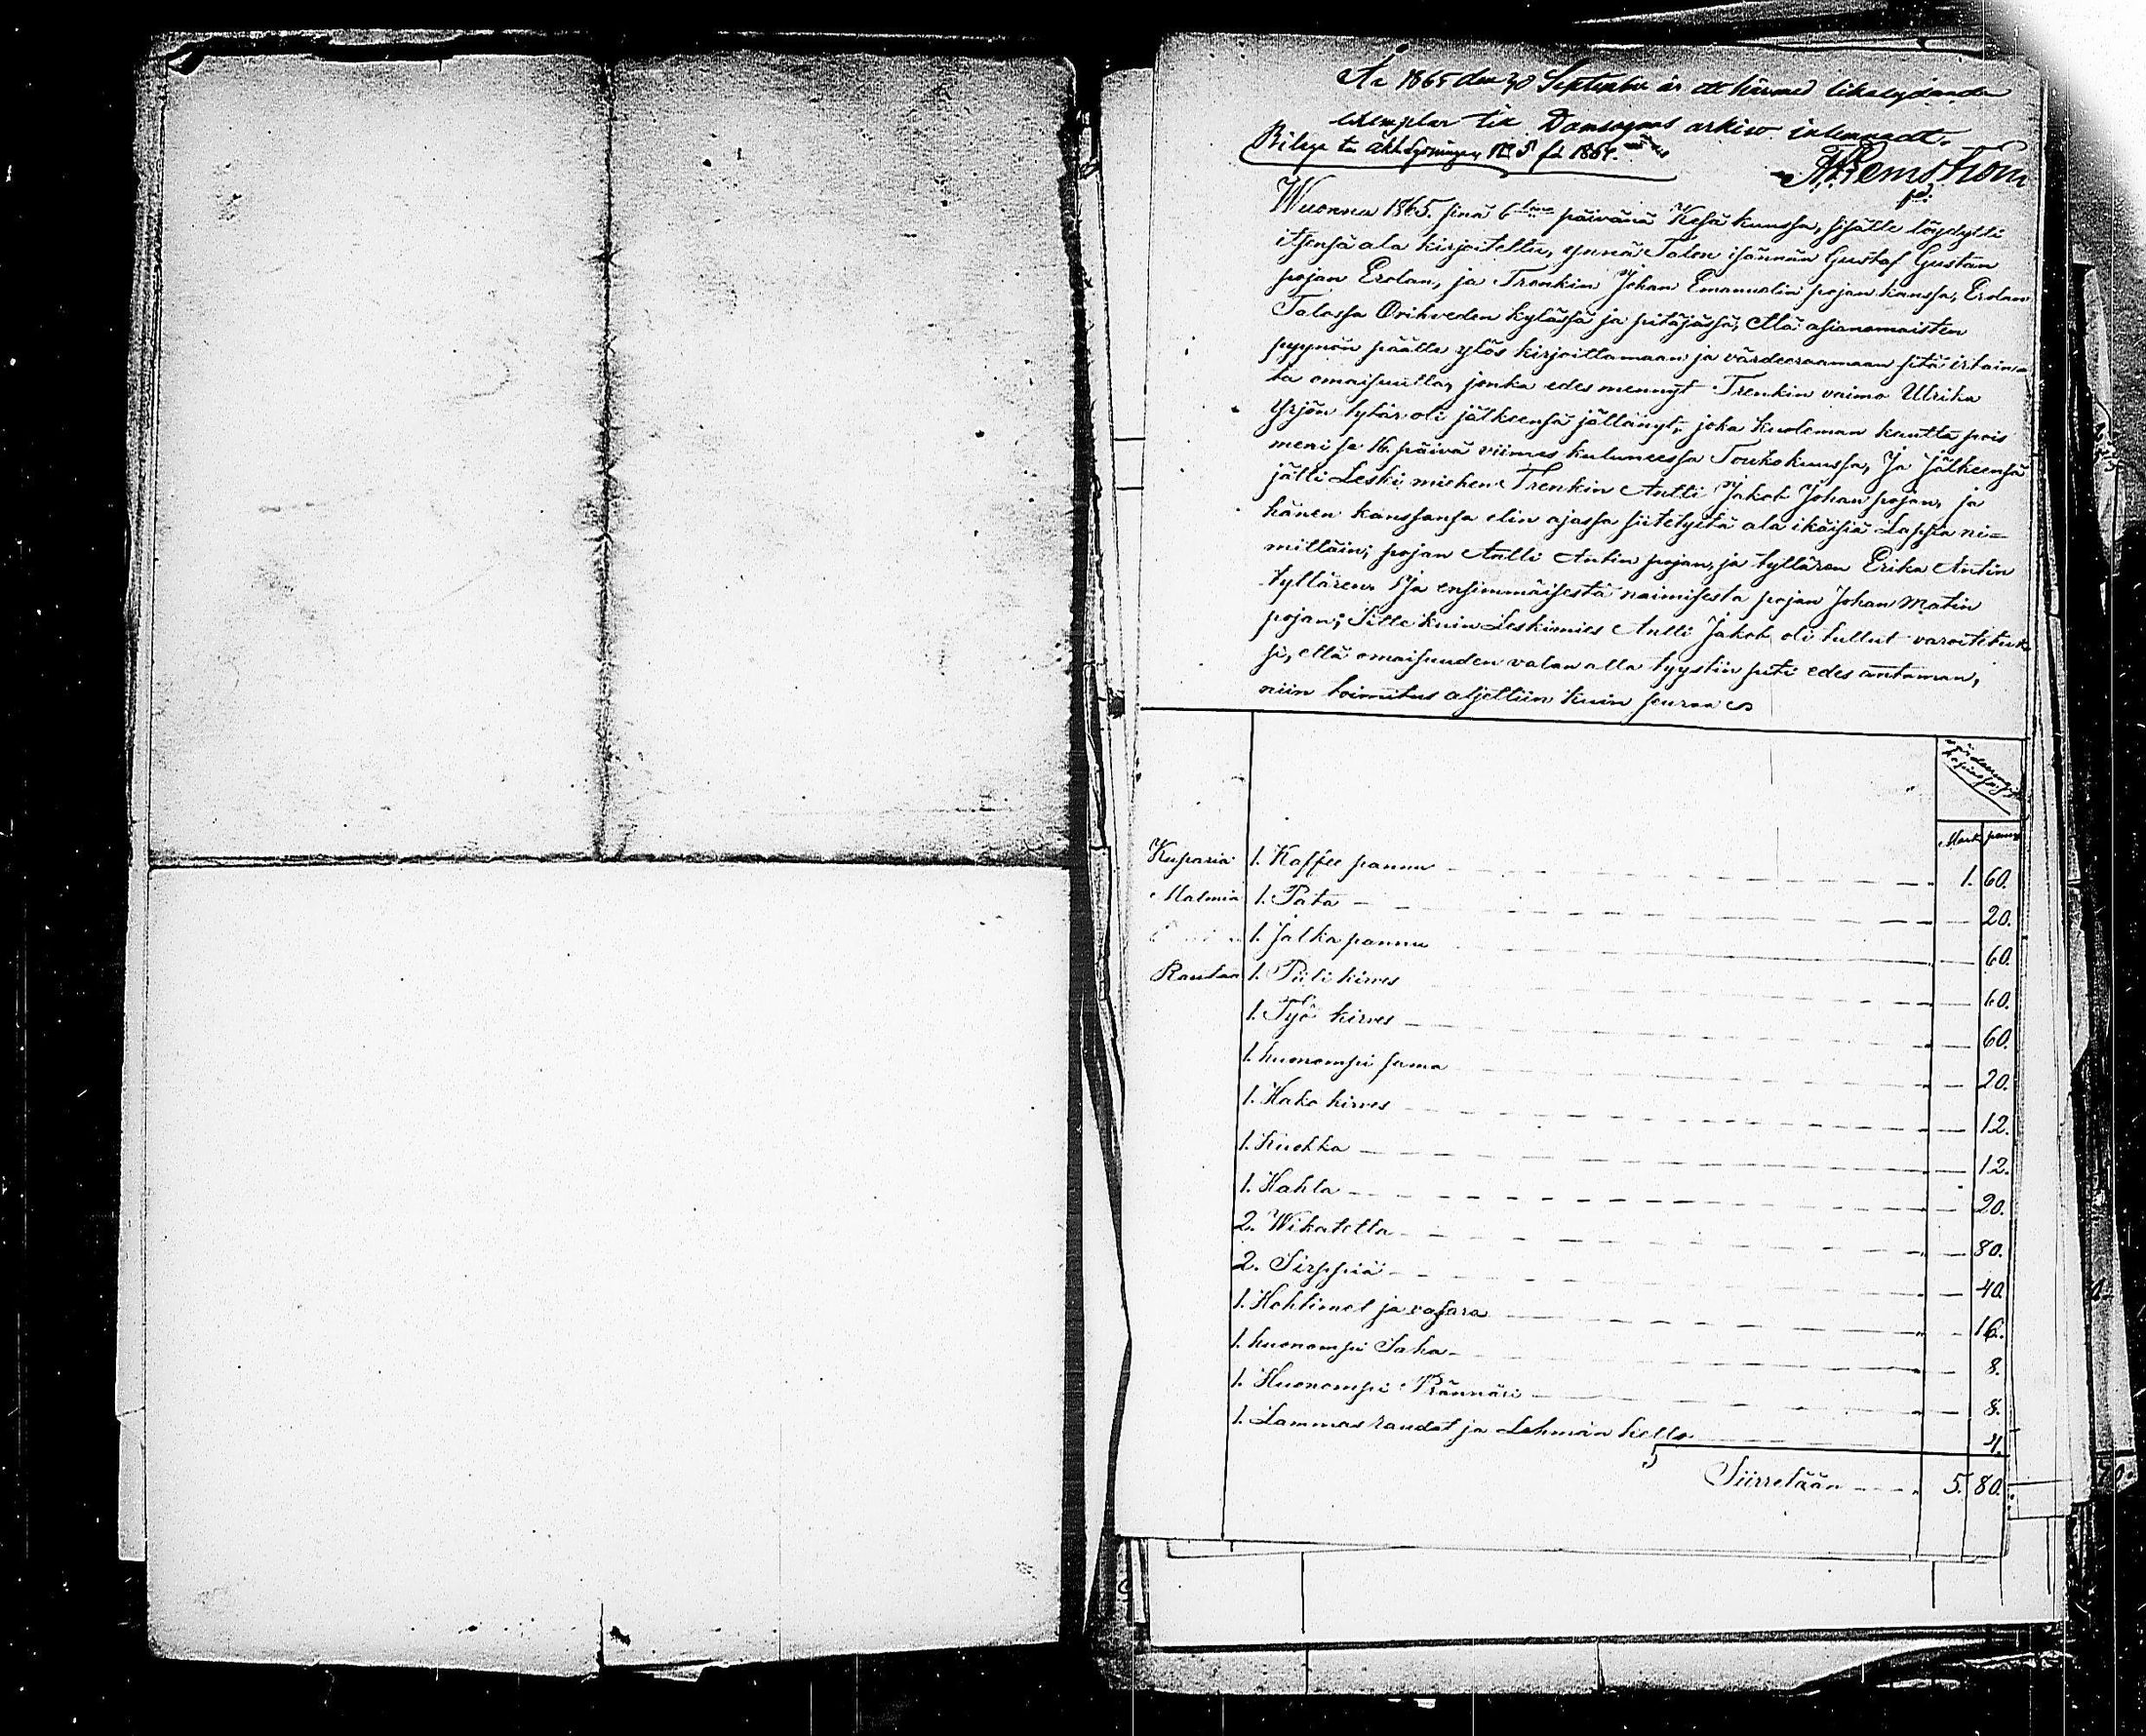 År 1865 den 30 September är ett härmed likalydande
exemplar till Domsagans arkiv inlemnadt.
Bilaga till Arkskrifningen № 5 för 1865.
Wuonna 1865. sinä 6 päivänä Kesä kuussa, sisälle löydytti
itsensä ala kirjoitettu, ynnä Talon isännän Gustaf Gustan
pojan Erolan, ja Trenkin Johan Emanuelin pojan kanssa, Erolan
Talossa Orihveden kylässä ja pitäjässä, Että asianomaisten
pyynön päälle ylös kirjoittamaan ja värdeeraamaan sitä irtainta
ta omaisuutta, jonka edes mennyt Trenkin vaimo Ulrika
Yrjön tytär oli jälkeensä jättänyt, joka kuoleman kautta pois
meni se 16. päivä viimes kuluneessa Toukokuussa, Ja jälkeensä
jätti Leski miehen Trenkin Antti Jakob Johan pojan, ja
hänen kanssansa elin ajassa siitetyitä ala ikäisiä Lapsia ni=
mittäin; pojan Antti Antin pojan, ja tyttären Erika Antin
tyttären. Ja ensimmäisestä naimisesta pojan Johan Matin
pojan; Sitte kuin Leskimies Antti Jakob oli tullut varoitetuk
si, että omaisuuden valan alla tyystin piti edes antaman,
niin toimitus aljettiin kuin seuraa
Mark penni
Kuparia 1. Kaffee pannu 1. 60.
Malmia 1. Pata 20.
1. Jalka pannu 60.
Rautaa 1. Piili kirves 60.
1. Työ kirves 60.
1. huonompi sama 20.
1. Hako kirves 12.
1. Kuokka 12.
1. Kahla 20.
2. Wikatetta 80.
2. Sirppiä 40.
1. Hohtimet ja vasara 16.
1. huonompi Saha 8.
1. Huonompi Prännäri 8.
1. Lammas raudat ja Lehmän kello 4.
Siirretään 5. 80.